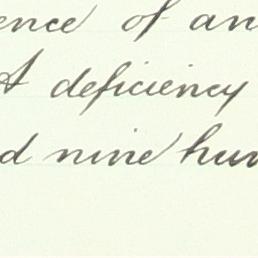 ence of an
A deficiency
d nine hun